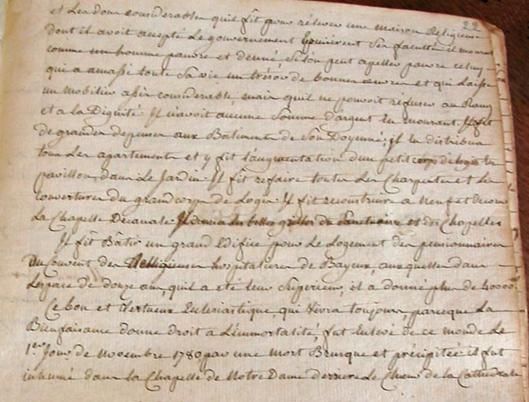 22
et Les dons considerables qu'il fit pour relever une maison Religieuse
dont il avoit accepté Le gouvernement Epuiserent Ses facultés il mourut
comme un homme pauvre et denué Si l'on peut apeller pauvre celuy
qui a amassé toute Sa vie un trésor de bonnes œuvres et qui Laisse
un mobilier assés considerable, mais qu'il ne pouvoit refuser au Rang
et a la Dignité. Il n'avoit aucune Somme d'argent en mourant. Il fit
de grandes depenses aux Batiments de Son Doyenné; Il en distribua
tous Les apartements et y fit l'augmentation d'un petit corps de logis en
pavillon dans Le Jardin. Il fit refaire toutes Les Charpentes et Les
couvertures du grand corps de Logis Il fit reconstruire a neuf et decora
La Chapelle Decanale Il decora des belles grilles du Sanctuaire et des Chapelles
Il fit Bâtir un grand Edifice pour Le Logement des pensionnaires
du Couvent des Religieuses hospitalieres de Bayeux, auxquelles dans
L'espace de douze ans, qu'il a eté leur Superieur, il a donné plus de 40000
Ce bon et Vertueux Eclesiastique qui Vivra toujours, parceque La
Bienfaisance donne droit a L'immortalité, fut Enlevé de ce monde Le
1er Jour de Novembre 1780 par une Mort Brusque et précipitée il fut
inhumé dans La Chapelle de Notre Dame derriere Le Chœur de la Cathedrale